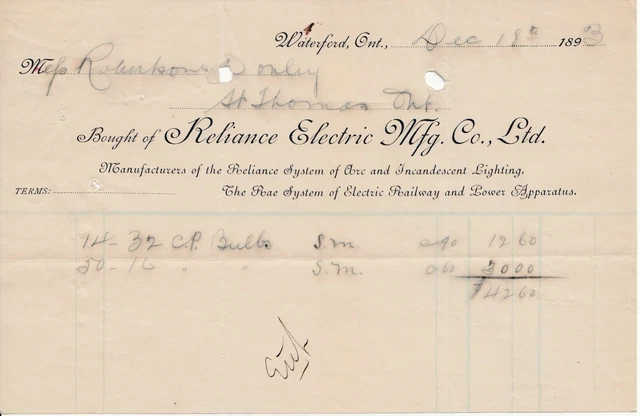 Waterford, Ont., Dec 18th 1893
Mess Robertson & Donley
St Thomas Ont.
Bought of Reliance Electric Mfg. Co., Ltd.
Manufacturers of the Reliance System of Arc and Incandescent Lighting,
TERMS: The Rae System of Electric Railway and Power Apparatus.
14 - 32 C.P. Bulbs S.M. 90 12 60
50 - 16 " " S.M. 60 30 00
$42 60
Ent